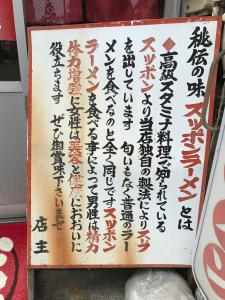 秘伝の味 スッポンラーメン とは
◆高級スタミナ料理で知られている
スッポンより当店独自の製法によりスープ
を出しています 匂いもなく普通のラー
メンを食べるのと全く同じです スッポン
ラーメンを食べる事によって男性は精力
体力増強に女性は美容と健康におおいに
役立ちます ぜひ御賞味下さいませ
店主